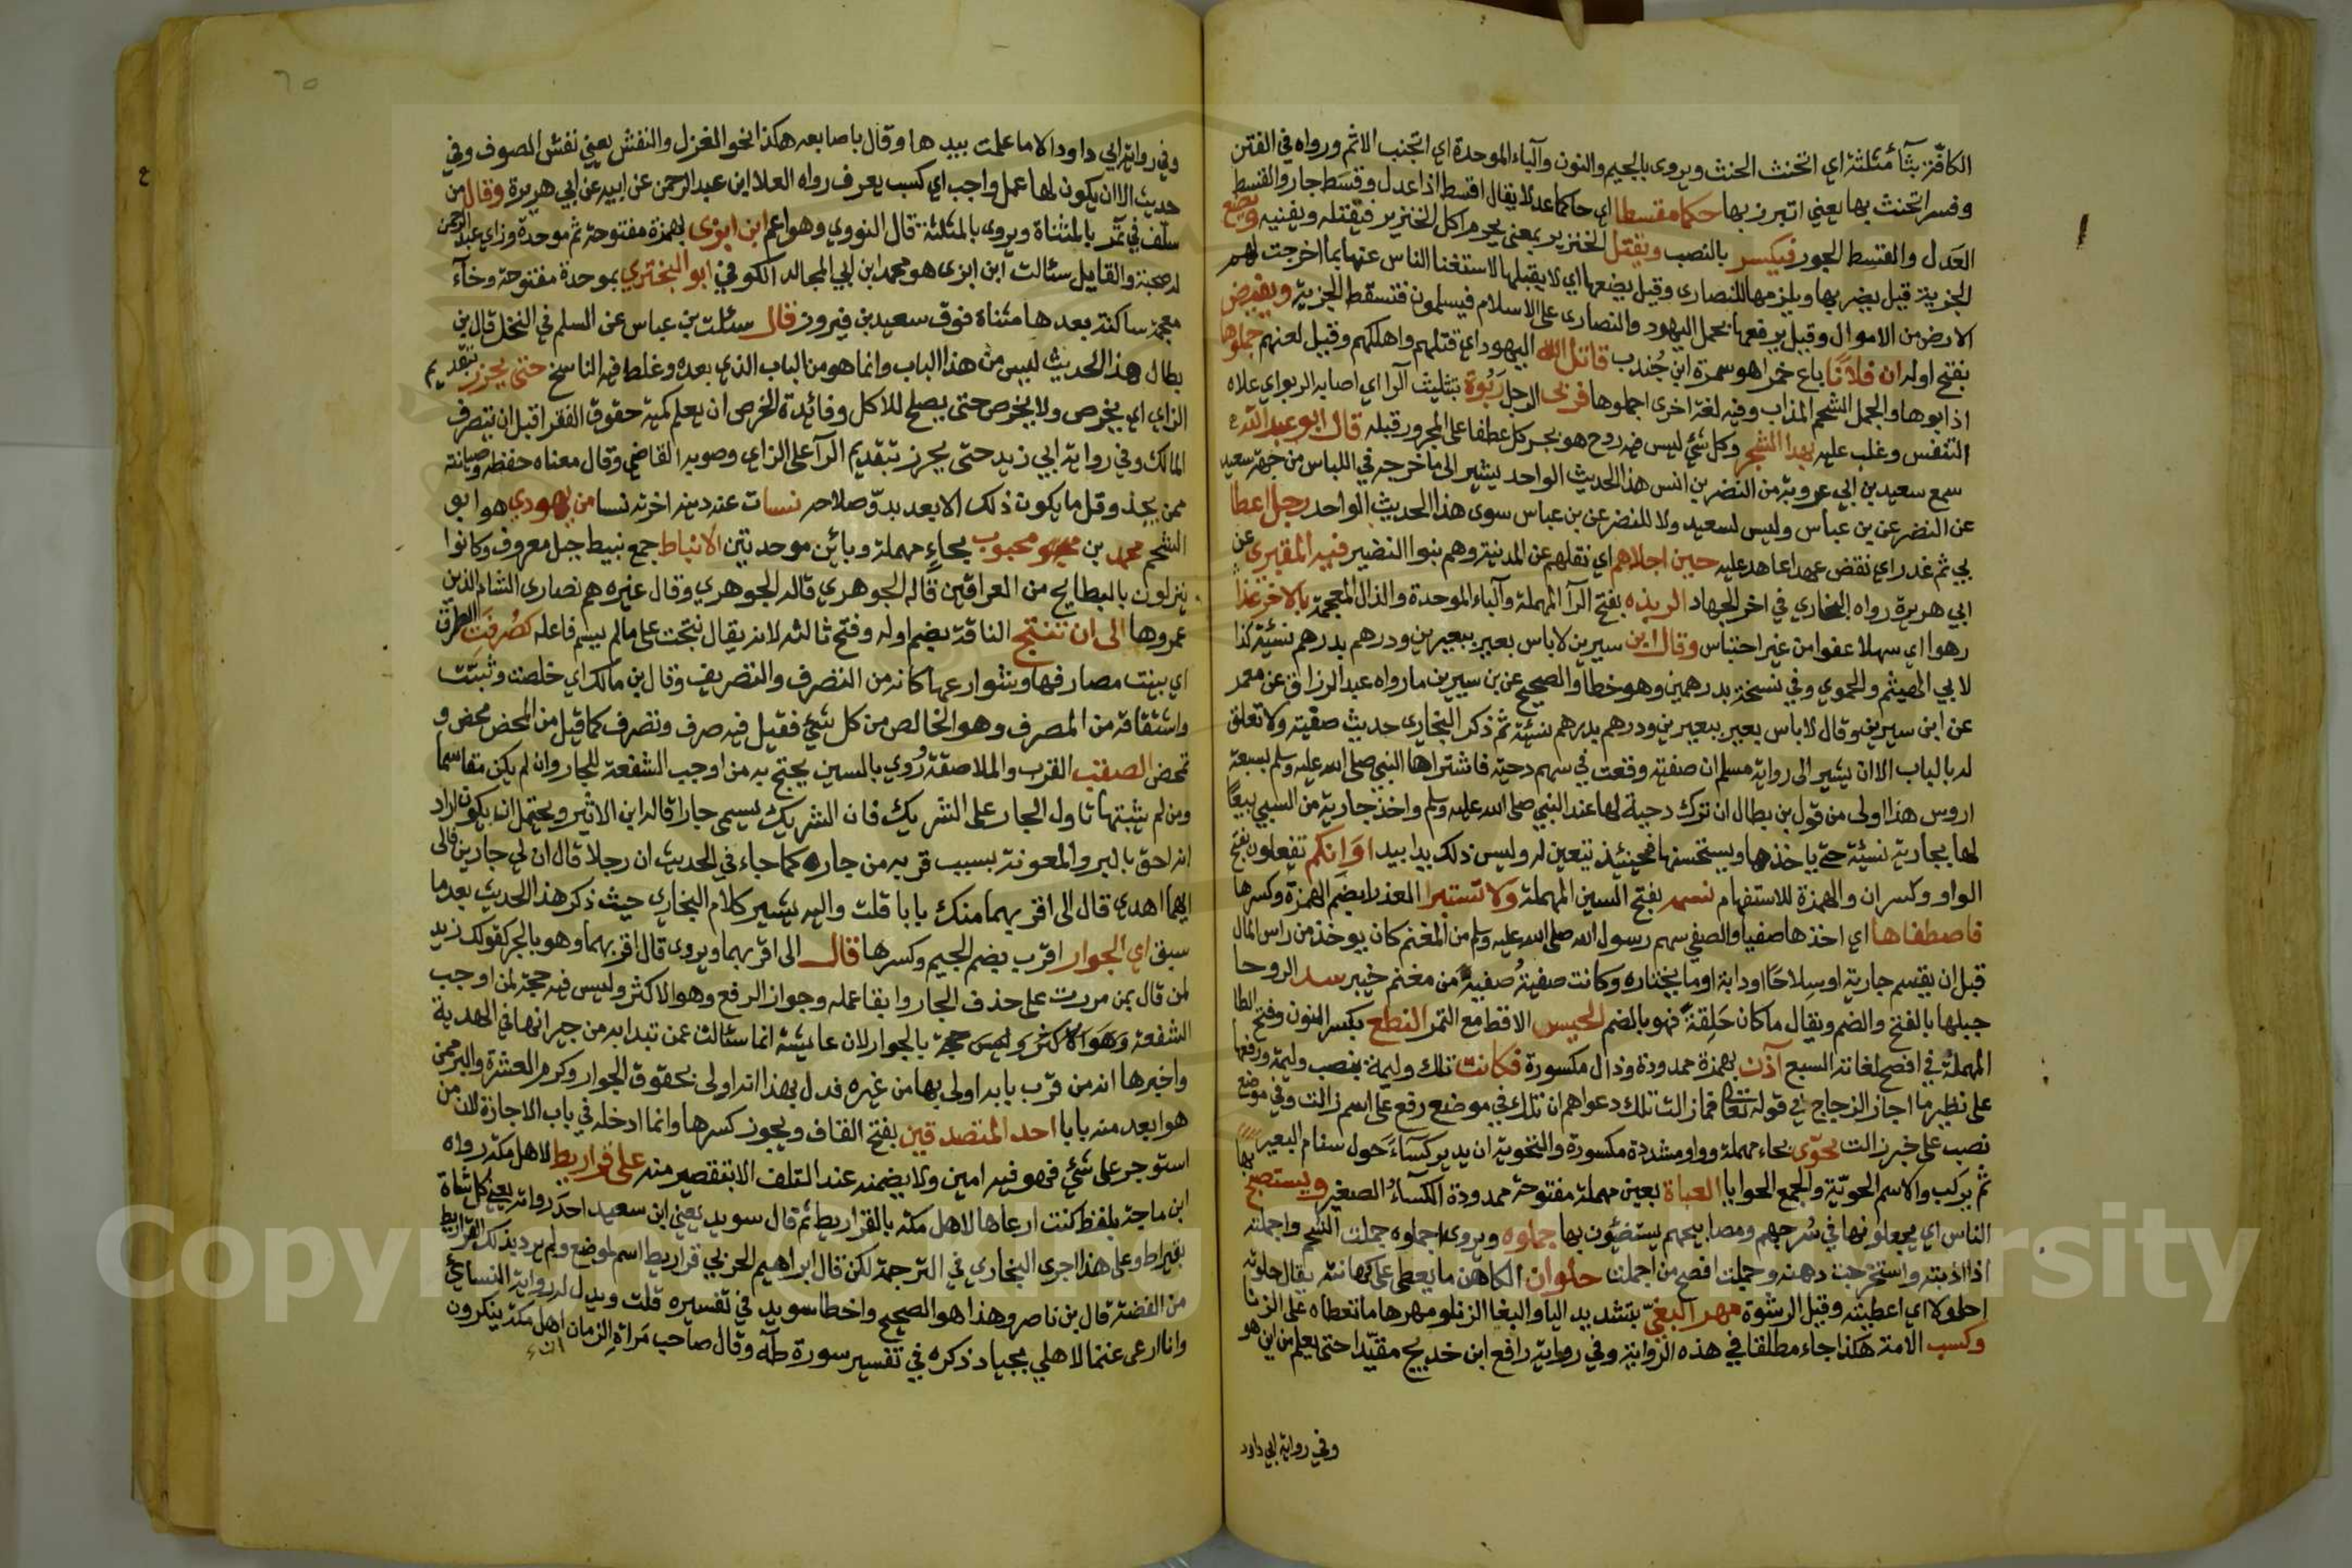 الكافّة بثآء مثلثة اي اتحنث الحنث ويروى بالجيم والنون وآلباء الموحدة اي اتجنب الاثم ورواه في الفتن
وفسر اتحنث بها يعني اتبرر بها حكما مقسطا اي حاكما عدلا يقال اقسط اذا عدل وقسَط جار والقسط
العَدل والقسط الجور فيكسر بالنصب ويقتل الخنزير بمعنى يحرم اكل الخنزير فيقتله ويفنيه ويضع
الجزية قيل يضربها ويلزمها للنصارى وقيل يضعها اي لا يقبلها لاستغنا الناس عنها بما اخرجت لهم
الارض من الاموال وقيل يرفعها بحمل اليهود والنصارى على الاسلام فيسلمون فتسقط الجزية ويفيض
بفتح اوله ان فلانًا باع خمرا هو سمرة ابن جُندب قاتل الله اليهود اي قتلهم واهلكهم وقيل لعنهم جملوها
اذابوها والجمل الشحم المذاب وفيه لغة اخرى اجملوها فربى الرجل رَبْوة بتثليث آلرا اي اصابه الربو اي علاه
التنفس وغلب عليه بهذا الشجر وكل شئ ليس فيه روح هو بجر كل عطفا على المجرور قبله قال ابو عبد الله
سمع سعيد بن ابي عروبة من النضر بن انس هذا الحديث الواحد يشير الى ما خرجه في اللباس من جهة سعيد
عن النضر عن بن عباس وليس لسعيد ولا للنضر عن بن عباس سوى هذا الحديث الواحد رجل اعطا
بي ثم غدر اي نقض عهدا عاهد عليه حين اجلاهم اي نقلهم عن المدينة وهم بنوا النضير فيه المقبرى عن
ابي هريرة رواه البخاري في اخر الجهاد الربذه بفتح آلرا المهملة وآلباء الموحدة والذال المعجمة بالاخر غدا
رهوا اي سهلا عفوا من غير احتباس وقال ابن سيرين لا باس بعير ببعيرين ودرهم بدرهم نسئة كذا
لابي الهيثم والحموي وفي نسخة بدرهمين وهو خطا والصحيح عن بن سيرين ما رواه عبد الرزاق عن معمر
عن ابن سيرين وقال لا باس بعير ببعيرين ودرهم بدرهم نسئة ثم ذكر البخارى حديث صفية ولا تعلق
له بالباب الا ان يشير الى رواية مسلم ان صفية وقعت في سهم دحية فاشتراها النبي صلى الله عليه وسلم بسبعة
اروس هذا اولى من قول بن بطال ان ترك دحية لها عند النبي صلى الله عليه وسلم واخذ جارية من السبي بيعًا
لها بجارية نسئة حتى ياخذها ويستحسنها فحينئذ تتعين له وليس ذلك يدا بيد اوَ اِنكم تفعلون بفتح
الواو وكسر ان والهمزة للاستفهام نسمه بفتح السين المهملة ولا تستبرا العذرا بضم الهمزة وكسرها
فاصطفاها اي اخذها صفيا والصفي سهم رسول الله صلى الله عليه وسلم من المغنم كان يوخذ من راس المال
قبل ان يقسم جارية او سِلاحًا او دابة او ما يختاره وكانت صفية صفيةً من مغنم خيبر سد الروحا
جبلها بالفتح والضم ويقال ما كان خَلِقةً فهو بالضم الحيس الاقط مع التمر النطع بكسر النون وفتح الطا
المهملة في افصح لغاته السبع آذن بهمزة ممدودة وذال مكسورة فكانت تلك وليمة بنصب وليمة ورفعها
على نظير ما اجاز الزجاج في قوله تعالى فما زالت تلك دعواهم ان تلك في موضع رفع على اسم زالت وفي موضع
نصب على خبر زالت يحوّى بحاء مهملة وواو مشددة مكسورة والنحوية ان يدير كسَاءً حَول سنام البعير
ثم يركب والاسم الحويّة والجمع الحوايا العباة بعين مهملة مفتوحة ممدودة الكسآء الصغير ويستصبح بها
الناس اي يجعلونها في سُرجهم ومصابيحهم يستضيئون بها جملوه ويروى اجملوه جملت الشحم واجملته
اذا اذبته واستخرجت دهنه وجملت افصح من اجملت حلوان الكاهن ما يعطى على كهانته يقال حلوته
احلوه اي اعطيته وقيل الرشوة مهر البغيّ بتشديد اليا والبغا الزنا ومهرها ما تعطاه على الزنا
وكسب الامة هكذا جاء مطلقا في هذه الرواية وفي رواية رافع ابن خديج مقيّدا حتى يعلم من اين هو
وفي رواية ابي داود
٦٥
وفي رواية ابي داود الا ما علمت بيدها وقال باصابعه هكذا نحو الغزل والنفش يعني نفش الصوف وفي
حديث الا ان يكون لها عمل واجب اي كسب يعرف رواه العلا ابن عبد الرحمن عن ابيه عن ابي هريرة وقال من
سلف في تمر بالمثناة ويروى بالمثلثة قال النووي وهو اعم ابن ابزى بهمزة مفتوحة ثم موحدة وزاي عبد الرحمن
له صحبة والقايل سئالت ابن ابزى هو محمد ابن ابي المجالد الكوفي ابو البختري بموحدة مفتوحة وخآء
معجمة ساكنة بعدها مثناة فوق سعيد بن فيروز قال سئلت بن عباس عن السلم في النخل قال بن
بطال هذا الحديث ليس من هذا الباب وانما هو من الباب الذي بعده وغلط فيه الناسخ حتى يحزر بتقديم
الزاي اي يخرص ولا يخرص حتى يصلح للاكل وفائدة الخرص ان يعلم كمية حقوق الفقرا قبل ان يتصرف
المالك وفي رواية ابي زيد حتى يحرز بتقديم الرآ على الزاي وصوبه القاضي وقال معناه حفظه وصيانته
ممن يجذ وقل ما يكون ذلك الا بعد بدوّ صلاحه نسات عنه دينه اخرته نسا من يهودي هو ابو
الشحم محمد بن محبوب بحاءٍ مهملة وبائن موحدتين الانباط جمع نبيط جبل معروف وكانوا
ينزلون بالبطايح من العراقين قاله الجوهري قاله الجوهري وقال غيره هم نصارى الشام الذين
عمروها الى ان تنتج الناقة بضم اوله وفتح ثالثه لانه يقال نتجت على ما لم يسم فاعله صُرفَت الطرق
اي بينت مصارفها وشوارعها كانه من التصرف والتصريف وقال بن مالك اي خلصت وثبتت
واشتقاقه من المصرف وهو الخالص من كل شئ فقيل فيه صرف وتصرف كما قيل من المحض محض و
تمحض الصقب القرب والملاصقة رُوي بالسين يحتج به من اوجب الشفعة للجار وان لم يكن مقاسما
ومن لم يثبتها تاول الجار على الشريك فان الشريك يسمى جارا قاله ابن الاثير ويحتمل ان يكون اراد
انه احق بالبر والمعونة بسبب قربه من جاره كما جاء في الحديث ان رجلا قال ان لي جارين فالى
ايهما اهدي قال الى اقربهما منك بابا قلت واليه يشير كلام البخاري حيث ذكر هذا الحديث بعد ما
سبق اي الجوار اقرب بضم الجيم وكسرها قال الى اقربهما ويروى قال اقربهما وهو بالجر كقولك زيد
لمن قال بمن مررت على حذف الجار وابقا عمله وجواز الرفع وهو الاكثر وليس فيه حجة لمن اوجب
الشفعة بالجوار لان عايشة انما سئالت عمن تبدا به من جيرانها في الهدية
واخبرها انه من قرب بابه اولى بها من غيره فدل بهذا انه اولى بحقوق الجوار وكرم العشرة والبر ممن
هو ابعد منه بابا احد المتصدقين بفتح القاف ويجوز كسرها وانما ادخله في باب الاجازة لان من
استوجر على شئ فهو فيه امين ولا يضمنه عند التلف الا بتقصير منه على قراريط لاهل مكة رواه
ابن ماجة بلفظ كنت ارعاها لاهل مكة بالقراريط ثم قال سويد يعني ابن سعيد احد رواته يعني كل شاة
بقيراط وعلى هذا جرى البخاري في الترجمة لكن قال ابراهيم الحربي قراريط اسم لموضع ولم يرد بذلك القراريط
من الفضة قال بن ناصر وهذا هو الصحيح واخطا سويد في تفسيره قلت ويدل له رواية النسائي
وانا ارعى غنما لاهلي بجياد ذكره في تفسير سورة طه وقال صاحب مَرآة الزمان اهل مكة ينكرون
Copyright © King Saud University